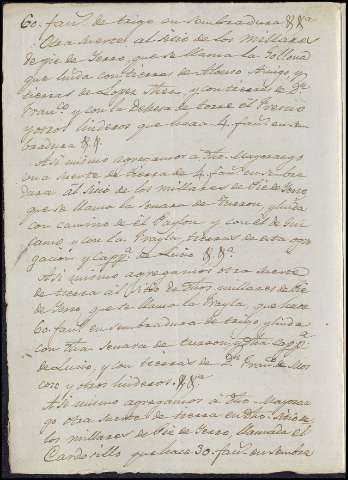 60. fan.s de trigo en sembradura
Otra suerte al sitio de los millares
de pie de Zerro, que se llama la
que linda con tierras de Alonso
tierras de Lopez, y con tierras de D.n
Fran.co y con la Dehesa de torre el Fresno
y otros linderos que hace 4. fan.s en sem-
bradura
Asi mismo agregamos a dho Mayorazgo
otra suerte de tierra de 4. fan.s en sembra
dura al sitio de los millares de Pie de Zerro
que se llama la Senara de, y linda
con camino de el y con el de
y con la Frayla, tierras de esta agre
gacion y capp.a de Lucio
Asi mismo agregamos otra suerte
de tierra al sitio de dhos millares de Pie
de Zerro, que se llama la Frayla, que hace
60. fan.s en sembradura de trigo, y linda
con dha Senara de y dha capp.a
de Lucio, y con tierras de D.n Fran.co de Mos
coso y otros linderos.
Asi mismo agregamos a dho Mayoraz
go otra suerte de tierra en dho sitio de
los millares de Pie de Zerro, llamada el
Cardosillo que hace 30. fan.s en sembra